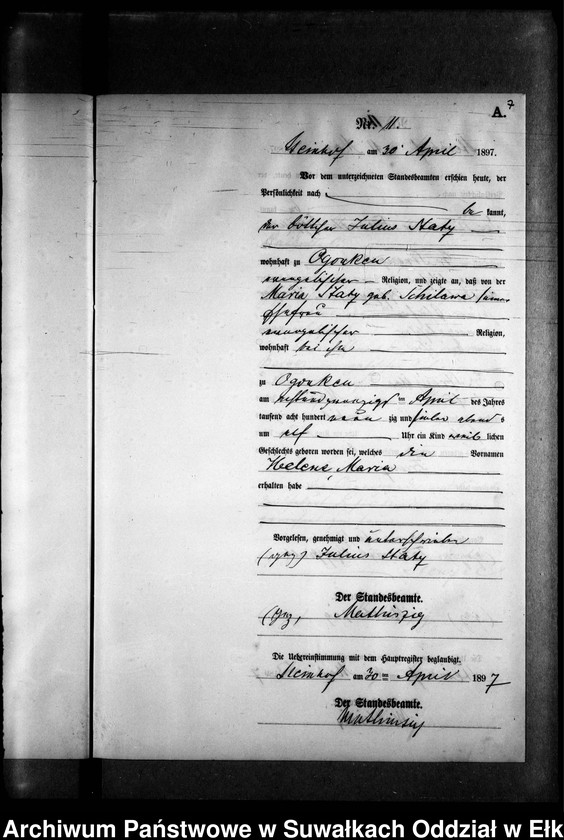 A. 7
Nr. 11.
Steinhof am 30 April 1897.
Vor dem unterzeichneten Standesbeamten erschien heute, der
Persönlichkeit nach
be kannt,
der Böttcher Julius Staty
wohnhaft zu Ogonken
evangelischer Religion, und zeigte an, daß von der
Maria Staty geb. seiner
Ehefrau
evangelischer Religion,
wohnhaft bei ihm
zu Ogonken
am ten April des Jahres
tausend acht hundert neun zig und sieben abends
um elf Uhr ein Kind weib lichen
Geschlechts geboren worden sei, welches die Vornamen
Helene, Maria
erhalten habe
Vorgelesen, genehmigt und unterschrieben
(gez) Julius Staty
Der Standesbeamte.
(gez,
Die Uebereinstimmung mit dem Hauptregister beglaubigt.
Steinhof am 30 ten April 1897
Der Standesbeamte.
Archiwum Państwowe w Suwałkach Oddział w Ełk